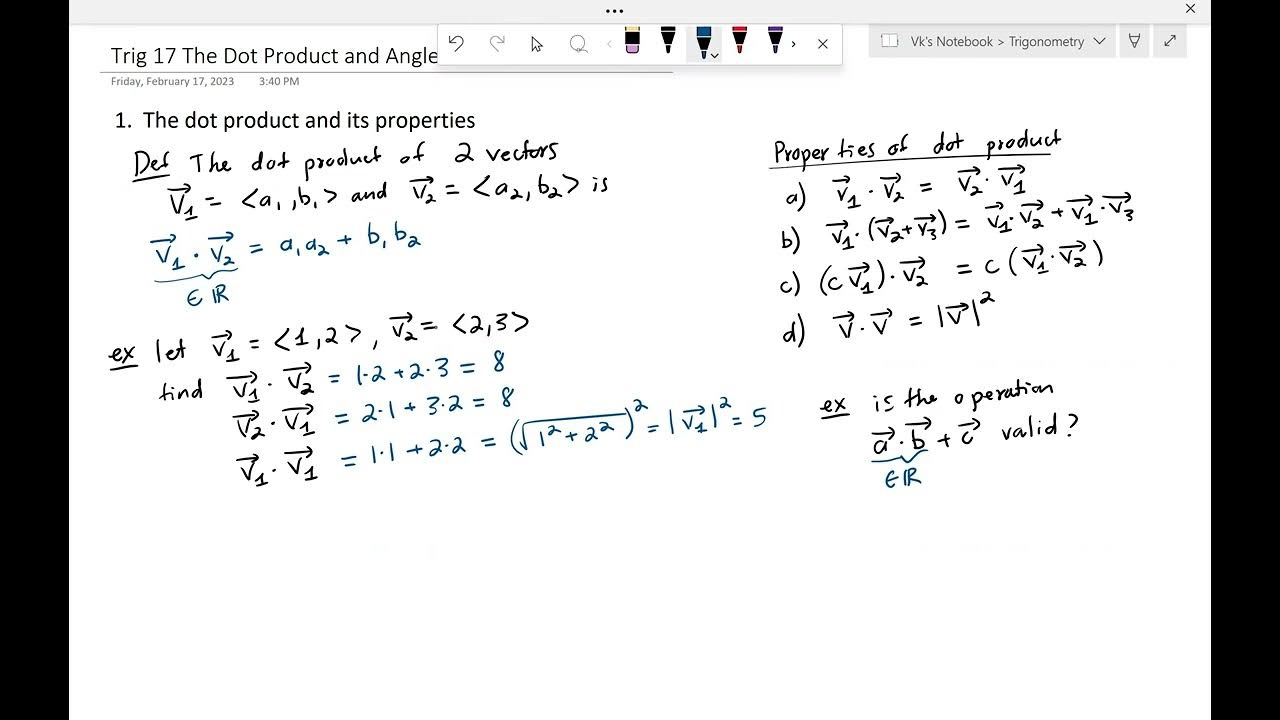 Vk's Notebook > Trigonometry
Trig 17 The Dot Product and Angle
Friday, February 17, 2023 3:40 PM
1. The dot product and its properties
Def The dot product of 2 vectors
v⃗₁ = <a₁, b₁> and v⃗₂ = <a₂, b₂> is
v⃗₁ · v⃗₂ = a₁a₂ + b₁b₂
∈ ℝ
ex let v⃗₁ = <1,2>, v⃗₂ = <2,3>
find v⃗₁ · v⃗₂ = 1·2 + 2·3 = 8
v⃗₂ · v⃗₁ = 2·1 + 3·2 = 8
v⃗₁ · v⃗₁ = 1·1 + 2·2 = (√(1² + 2²))² = |v⃗₁|² = 5
Properties of dot product
a) v⃗₁ · v⃗₂ = v⃗₂ · v⃗₁
b) v⃗₁ · (v⃗₂ + v⃗₃) = v⃗₁ · v⃗₂ + v⃗₁ · v⃗₃
c) (c v⃗₁) · v⃗₂ = c (v⃗₁ · v⃗₂)
d) v⃗ · v⃗ = |v⃗|²
ex is the operation
a⃗ · b⃗ + c⃗ valid?
∈ ℝ